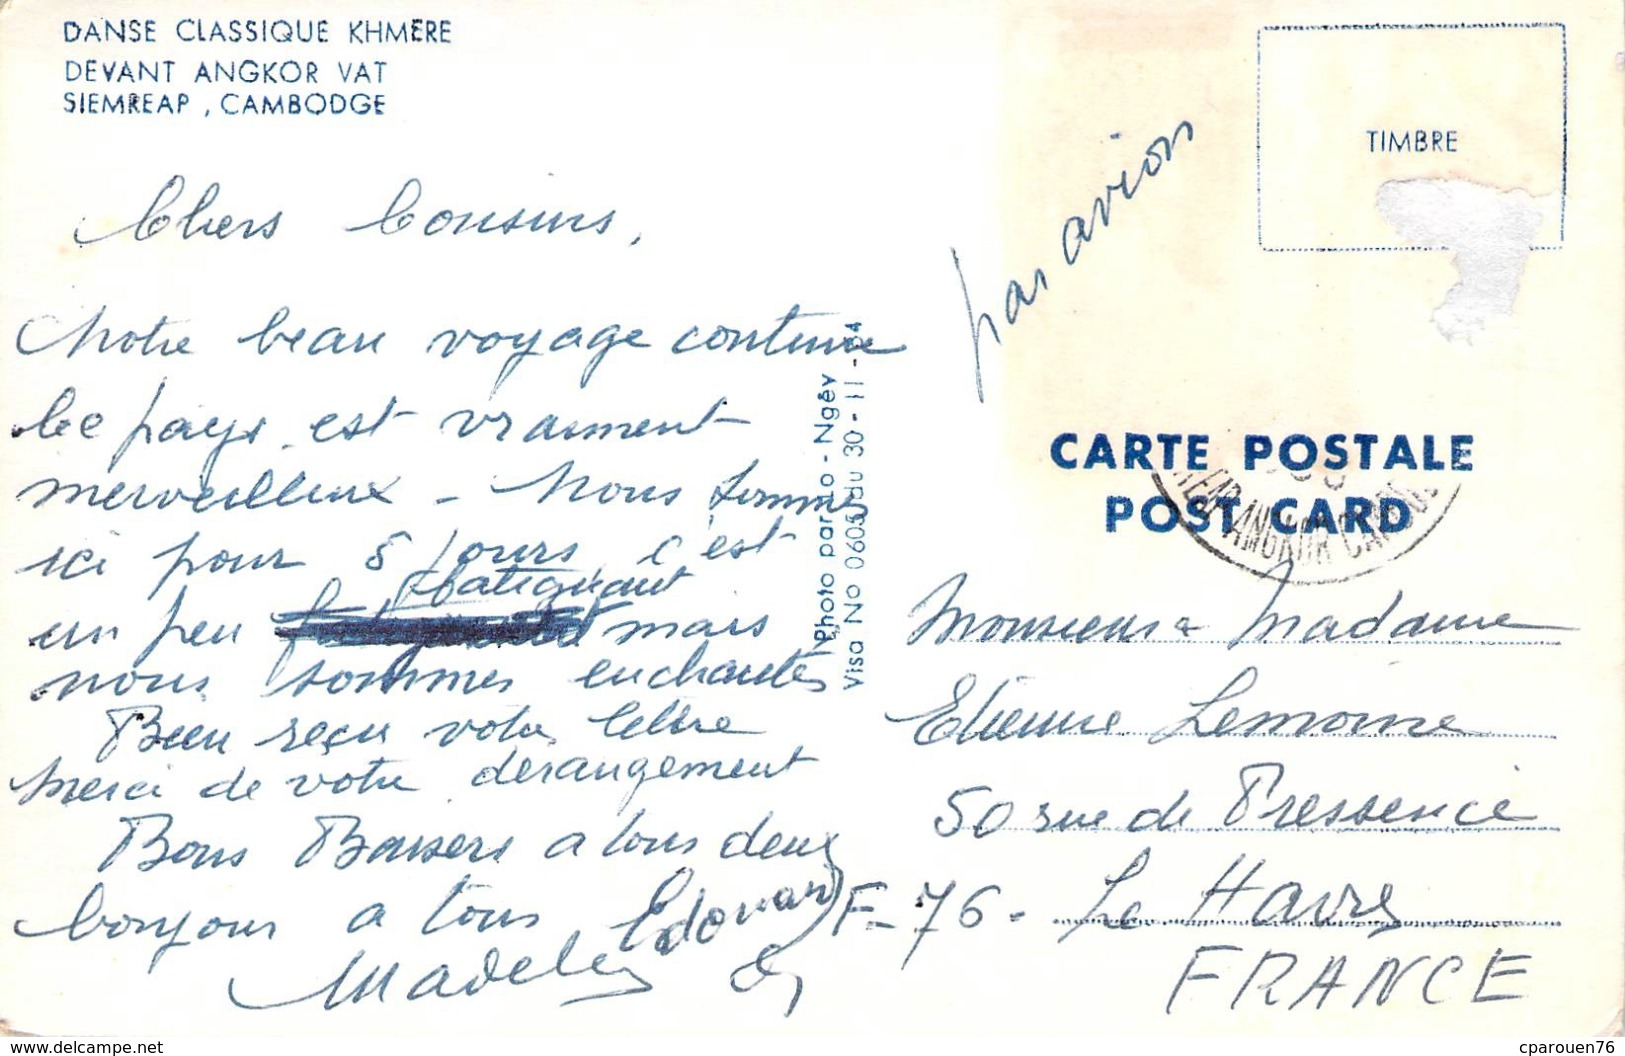 DANSE CLASSIQUE KHMÈRE
DEVANT ANGKOR VAT
SIEMREAP, CAMBODGE
Chers Cousins,
Notre beau voyage continue
Le pays est vraiment
merveilleux - Nous sommes
ici pour 8 jours c'est
fatiguant
un peu mais
nous sommes enchantés
Bien reçu votre lettre
merci de votre derangement
Bons Baisers a tous deux
bonjour a tous Edouard
Madeleine
Photo par Lo-Ngév
Visa No 0605 du 30-11-64
par avion
TIMBRE
CARTE POSTALE
POST CARD
ANGKOR
Monsieur & Madame
Etienne Lemoine
50 rue de Pressencé
F-76- Le Havre
FRANCE
delcampe.net
cparouen76